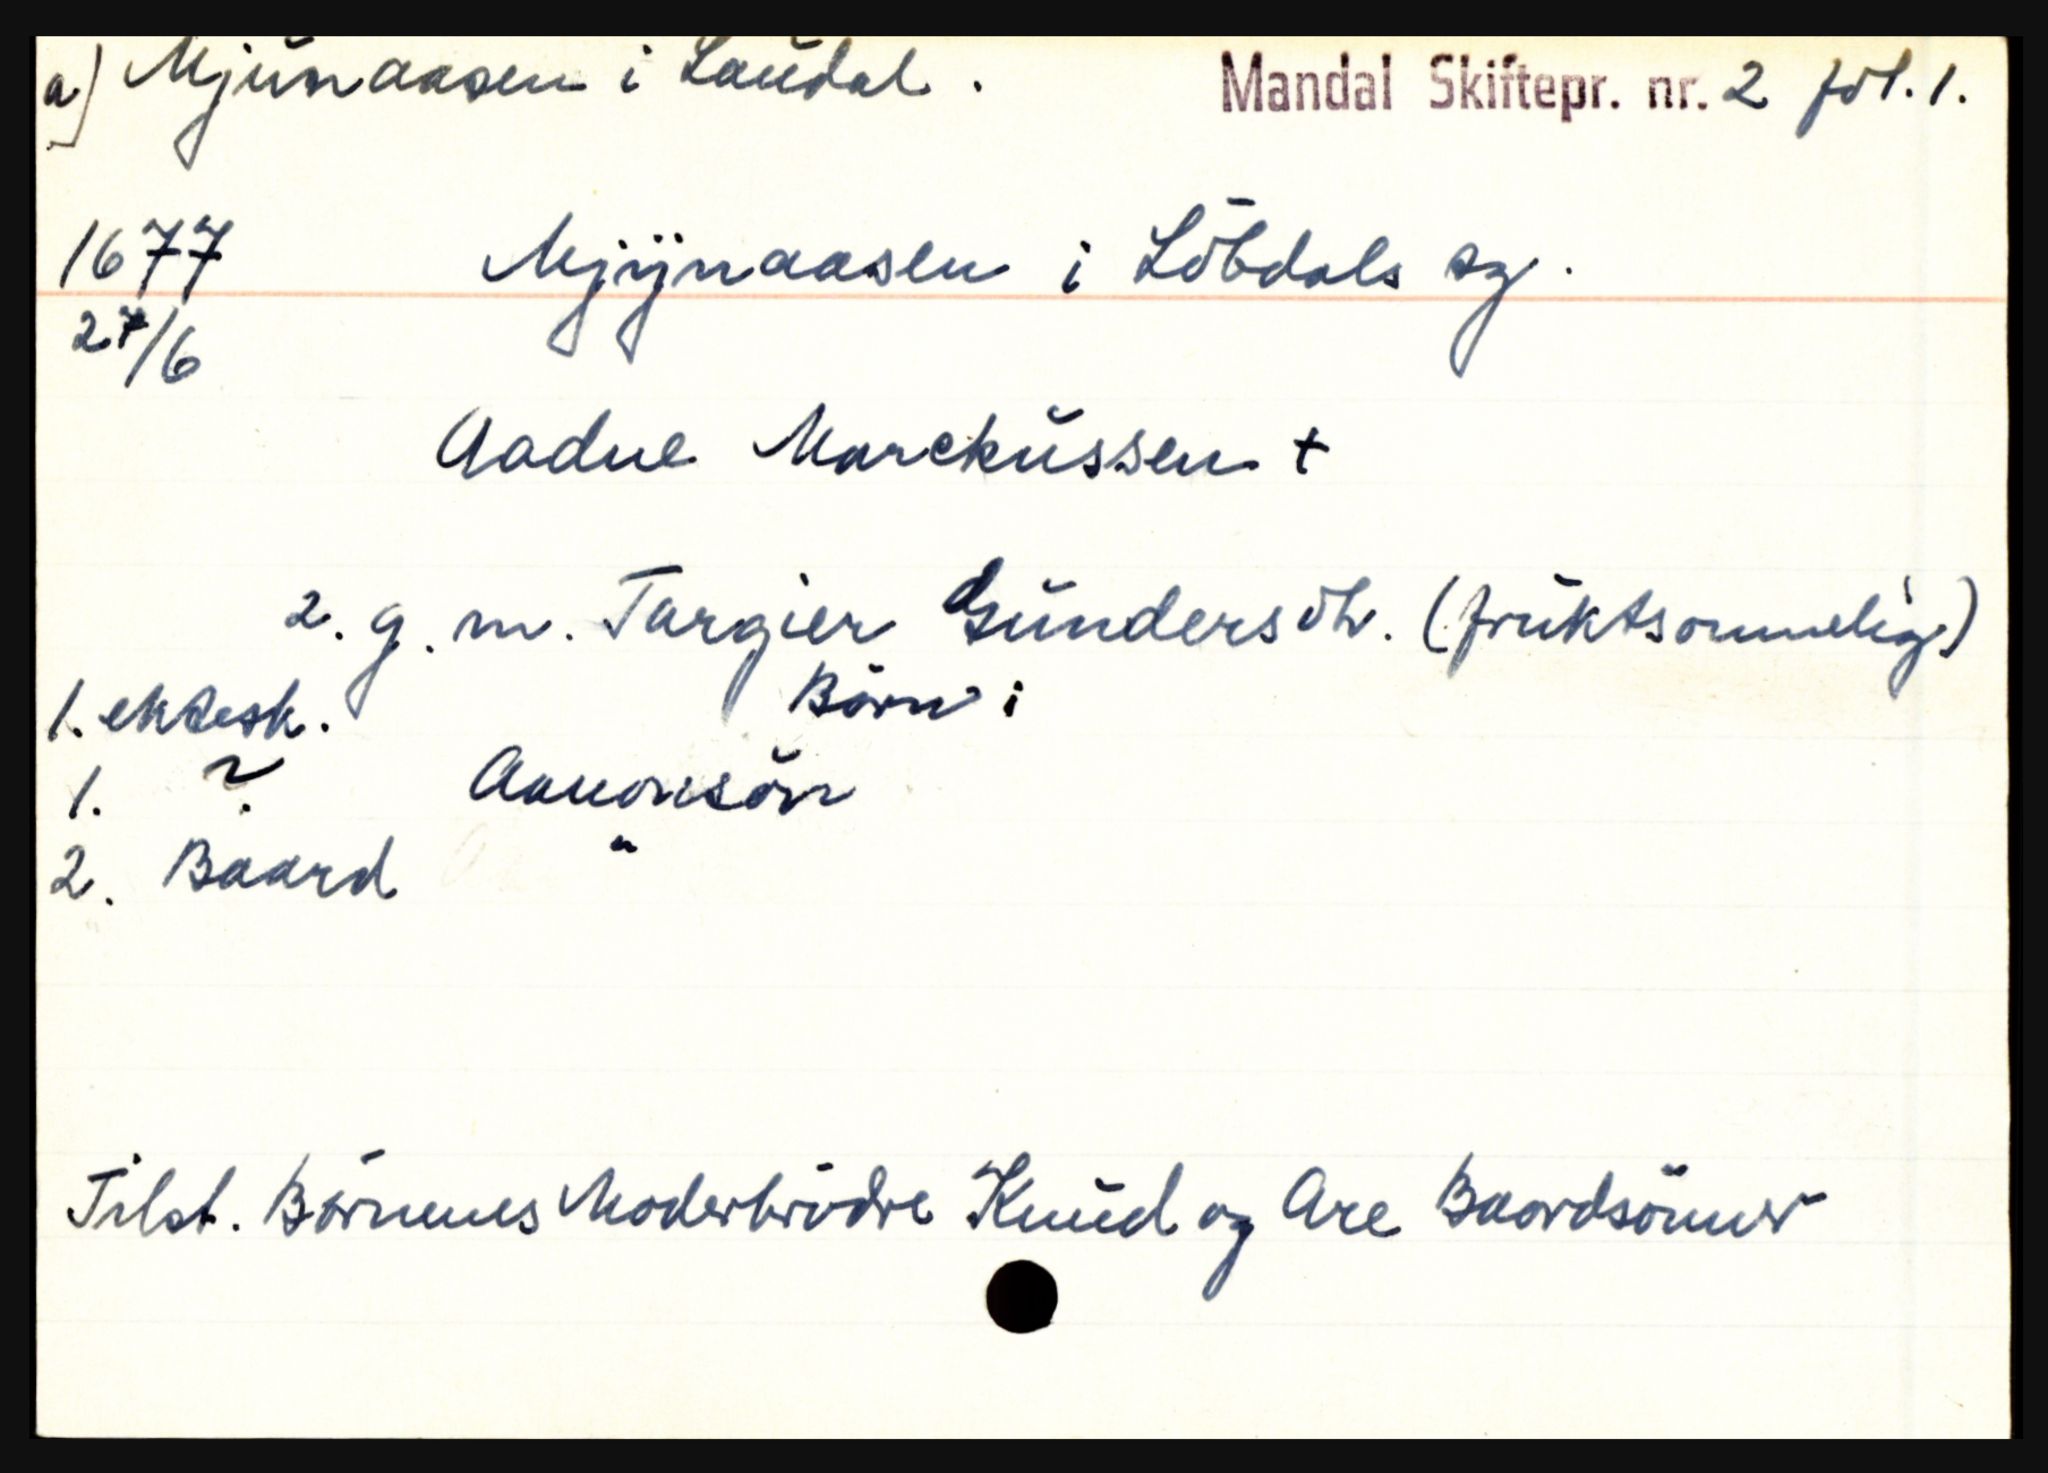 a) Mjunaasen i Laudal. Mandal Skiftepr. nr. 2 fol. 1.
1677 Mjÿnaasen i Löbdals sg.
27/6
Aadne Marckussen +
2. g. m. Targier Gundersdtr. (fruktsommelig)
1. ektesk. Börn i
1. ? Aanonsön
2. Baard "
Tilst. Börnenes Moderbrödre Knud og Are Baardsönner